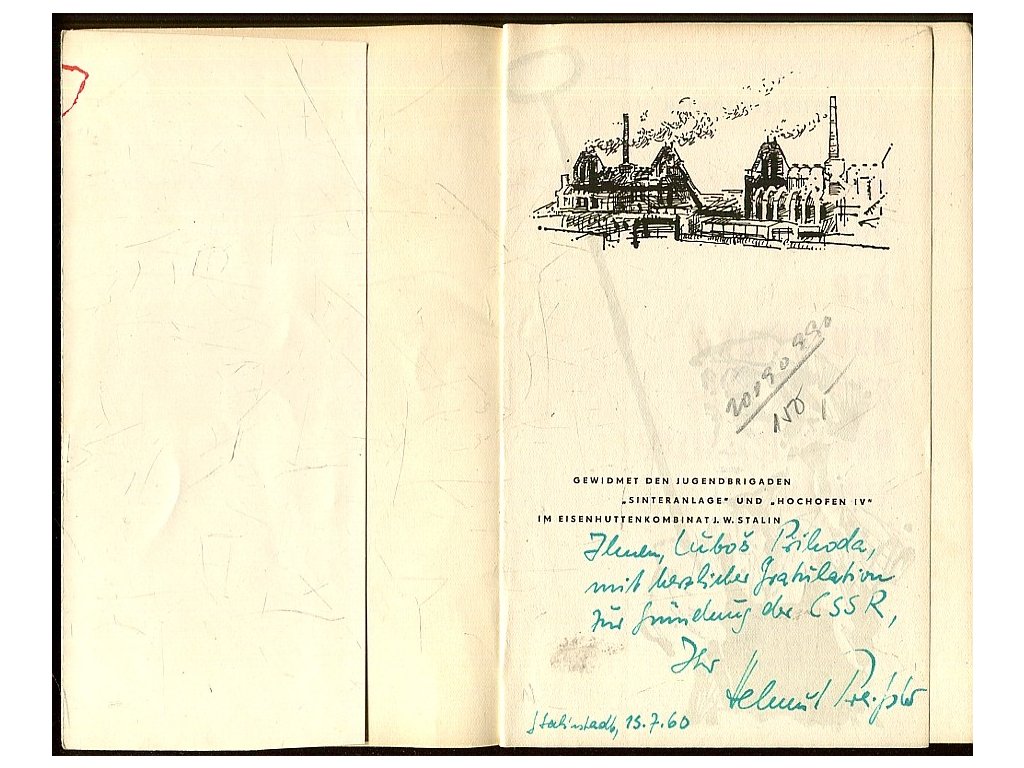 20090990
150
GEWIDMET DEN JUGENDBRIGADEN
„SINTERANLAGE" UND „HOCHOFEN IV"
IM EISENHUTTENKOMBINAT J. W. STALIN
Ihnen, Luboš Přihoda,
mit herzlicher Gratulation
zur Gründung der ČSSR,
Ihr
Helmut Preißler
Stalinstadt, 15.7.60